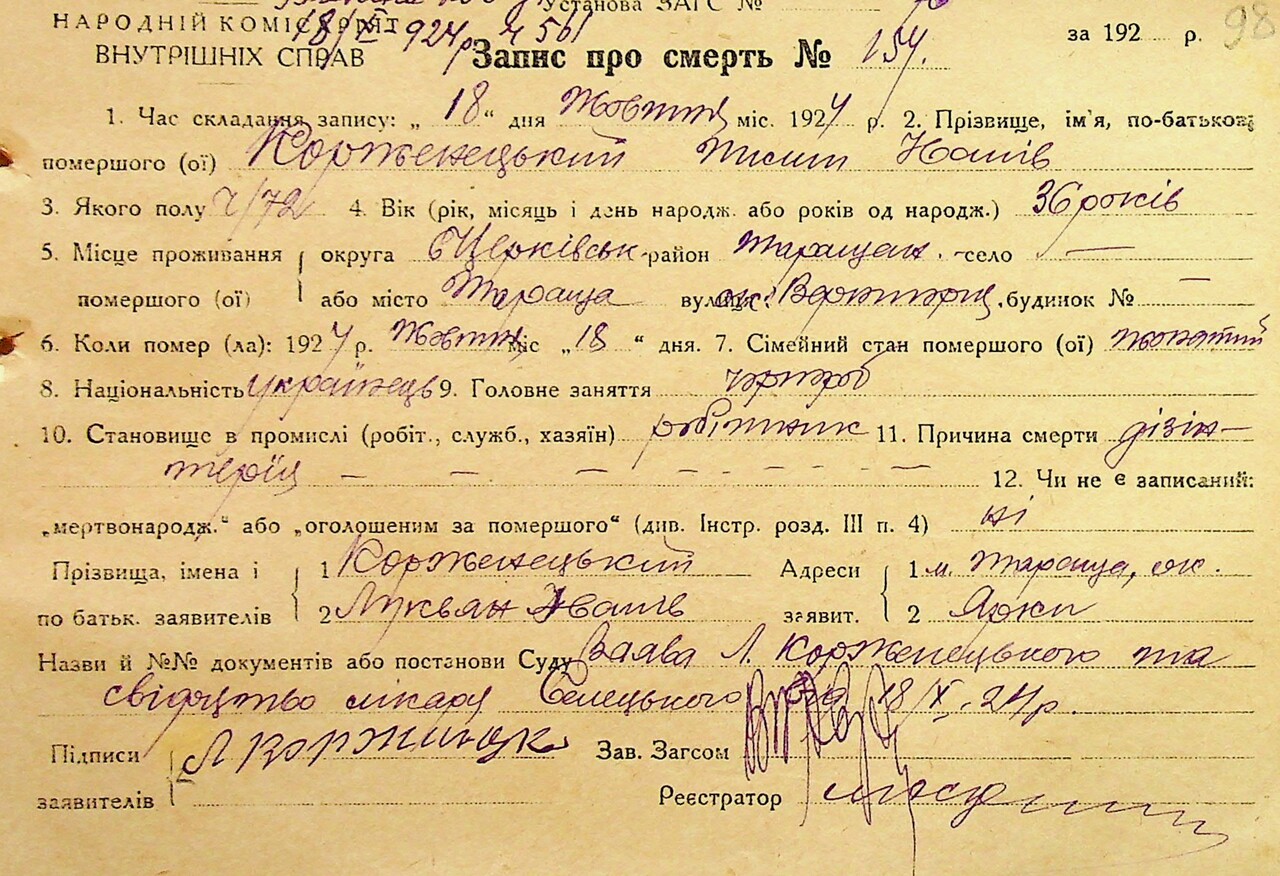 Установа ЗАГС №
НАРОДНІЙ КОМІСАРІЯТ 18/X 924р. ч 561
ВНУТРІШНІХ СПРАВ Запис про смерть № 154. за 192 р. 98
1. Час складання запису: „ 18 “ дня Жовтня міс. 1924 р. 2. Прізвище, ім'я, по-батькові
помершого (ої) Корженецький Тисит Іванів
3. Якого полу 4. Вік (рік, місяць і день народж. або років од народж.) 36 років
5. Місце проживання округа БЦерківськ. район Таращан. село —
помершого (ої) або місто Тараща вулиця будинок № —
6. Коли помер (ла): 1924 р. Жовтня міс „18 “ дня. 7. Сімейний стан помершого (ої) жонатий
8. Національність українець 9. Головне заняття чорнороб
10. Становище в промислі (робіт., служб., хазяїн) робітник 11. Причина смерти дізін-
терія — — — — — — — — 12. Чи не є записаний:
„мертвонародж.“ або „оголошеним за помершого“ (див. Інстр. розд. III п. 4) ні
Прізвища, імена і 1 Корженецький Адреси 1 м. Тараща, ок.
по батьк. заявителів 2 Лукян Іванів заявит. 2 Ярки
Назви й №№ документів або постанови Суду Заява Л. Корженецького та
свідоцтво лікаря Селецького од 18/X-24р.
Підписи Зав. Загсом
заявителів Реєстратор